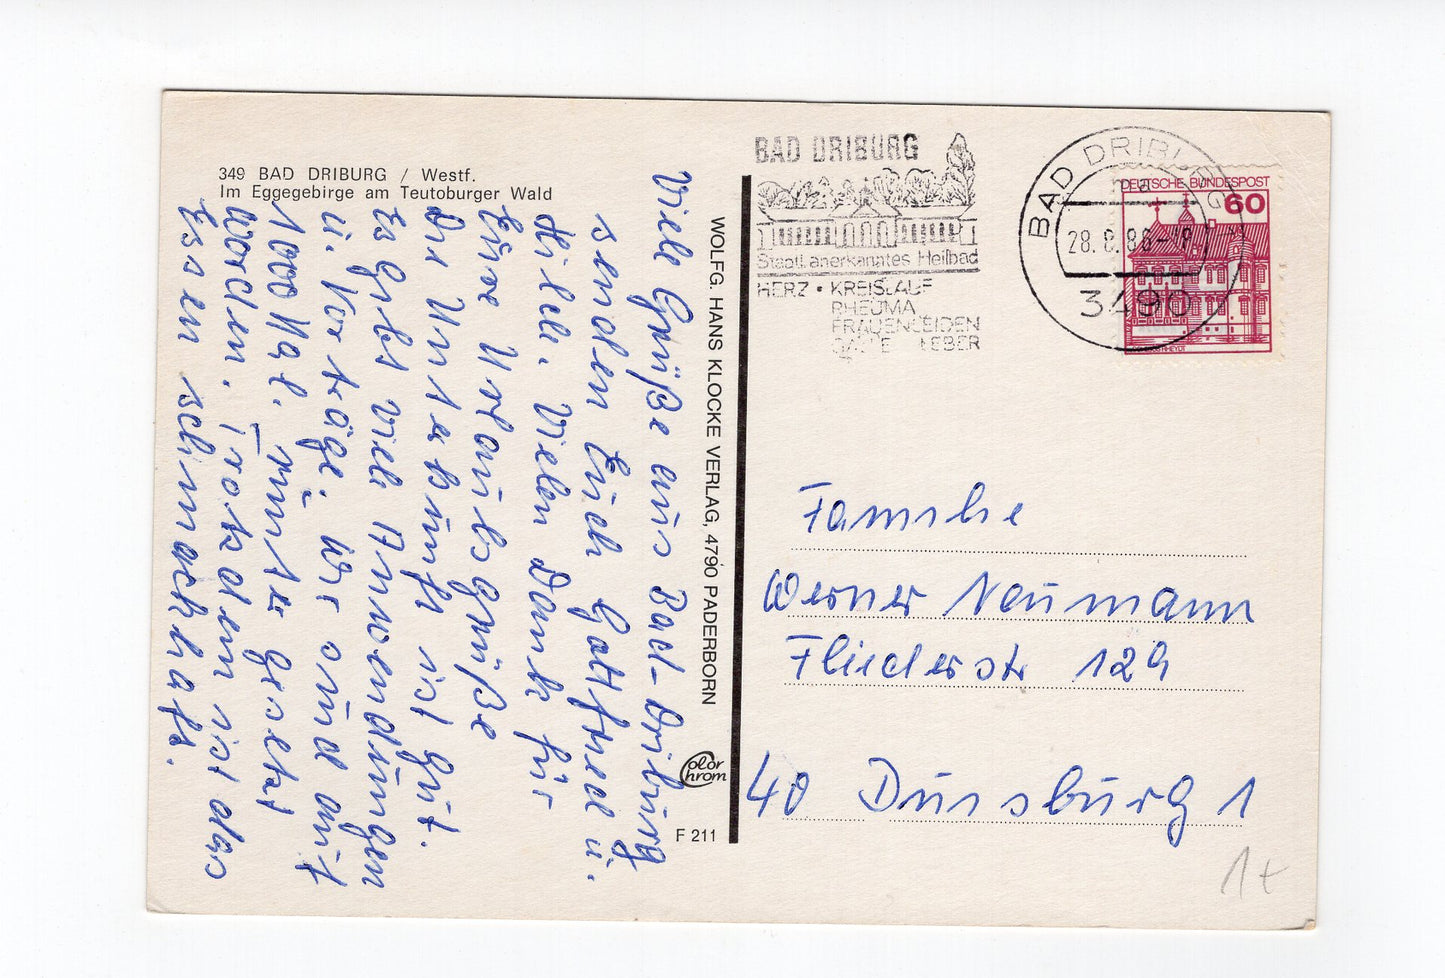 349 BAD DRIBURG / Westf.
Im Eggegebirge am Teutoburger Wald
Viele Grüße aus Bad-Driburg
senden Euch Gottfried u.
Hilde. Vielen Dank für
Eure Urlaubsgrüße
Die Unterkunft ist gut.
Es gibt viele Anwendungen
u. Vorträge. Wir sind auf
1000 Kal. runter gesetzt
worden. Trotzdem ist das
Essen schmackhaft.
WOLFG. HANS KLOCKE VERLAG, 4790 PADERBORN
Color
Chrom
F 211
BAD DRIBURG
Staatl. anerkanntes Heilbad
HERZ • KREISLAUF
RHEUMA
FRAUENLEIDEN
GALLE LEBER
BAD DRIBURG
28.8.86-18
3490
DEUTSCHE BUNDESPOST
60
RHEYDT
Familie
Werner Neumann
Fliederstr 129
40 Duisburg 1
1+